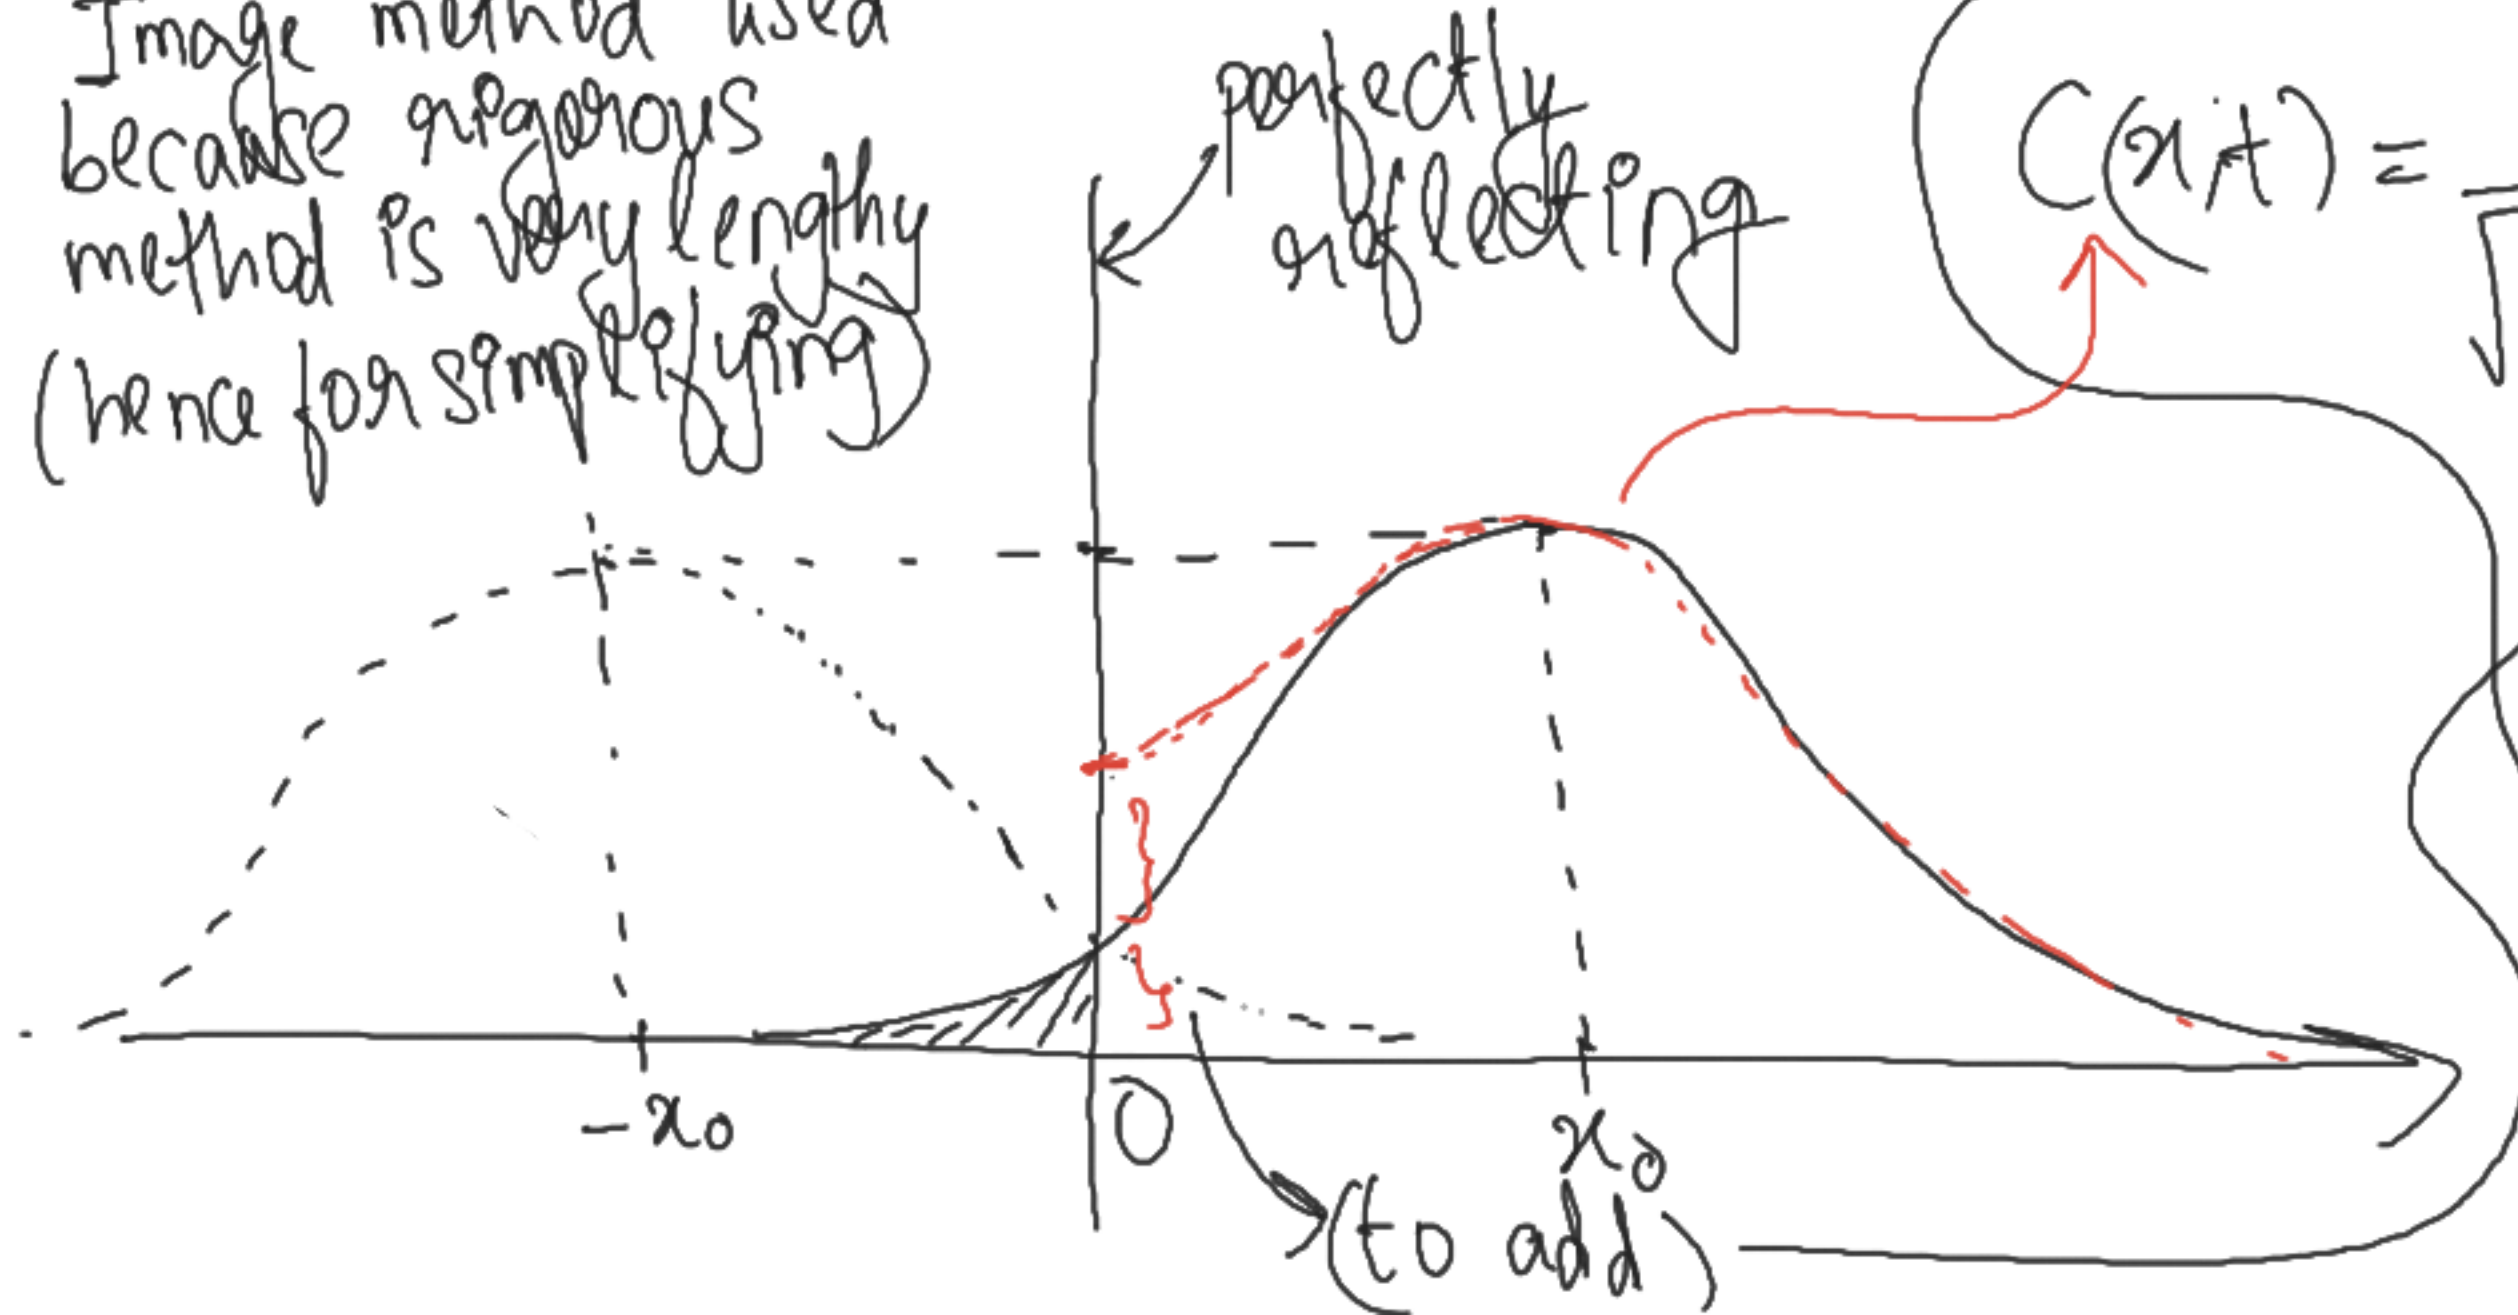 Image method used
because rigorous
method is very lengthy
(hence for simplifying)
perfectly
reflecting
C(x,t) =
-x₀
0
x₀
(to add)